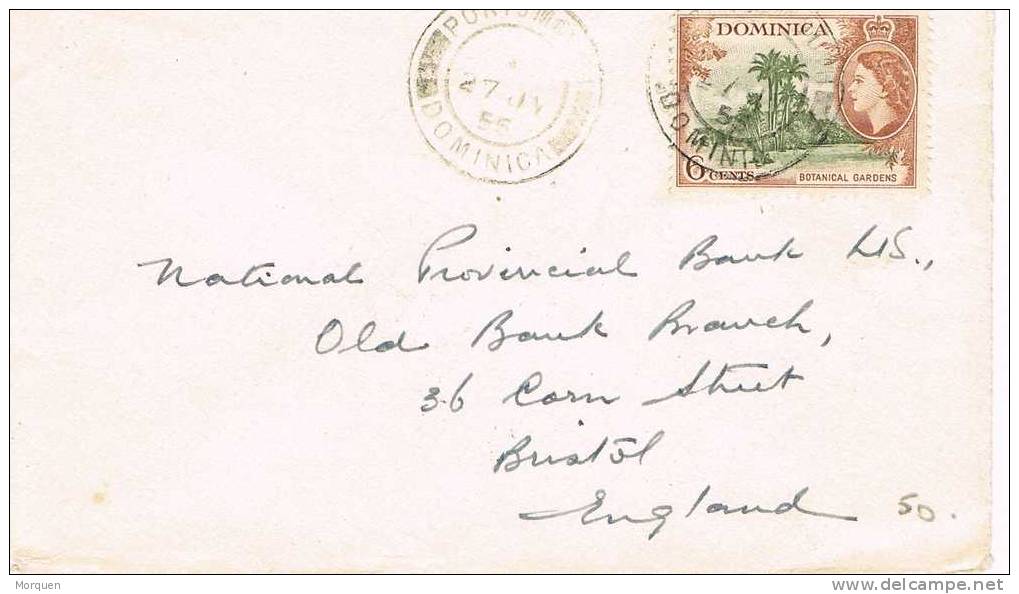 PORTSM
27 JY
55
DOMINICA
DOMINICA
DOMINI
6 CENTS
BOTANICAL GARDENS
National Provincial Bank Ltd.,
Old Bank Branch,
36 Corn Street
Bristol
England
50.
Morquen
delcampe.net